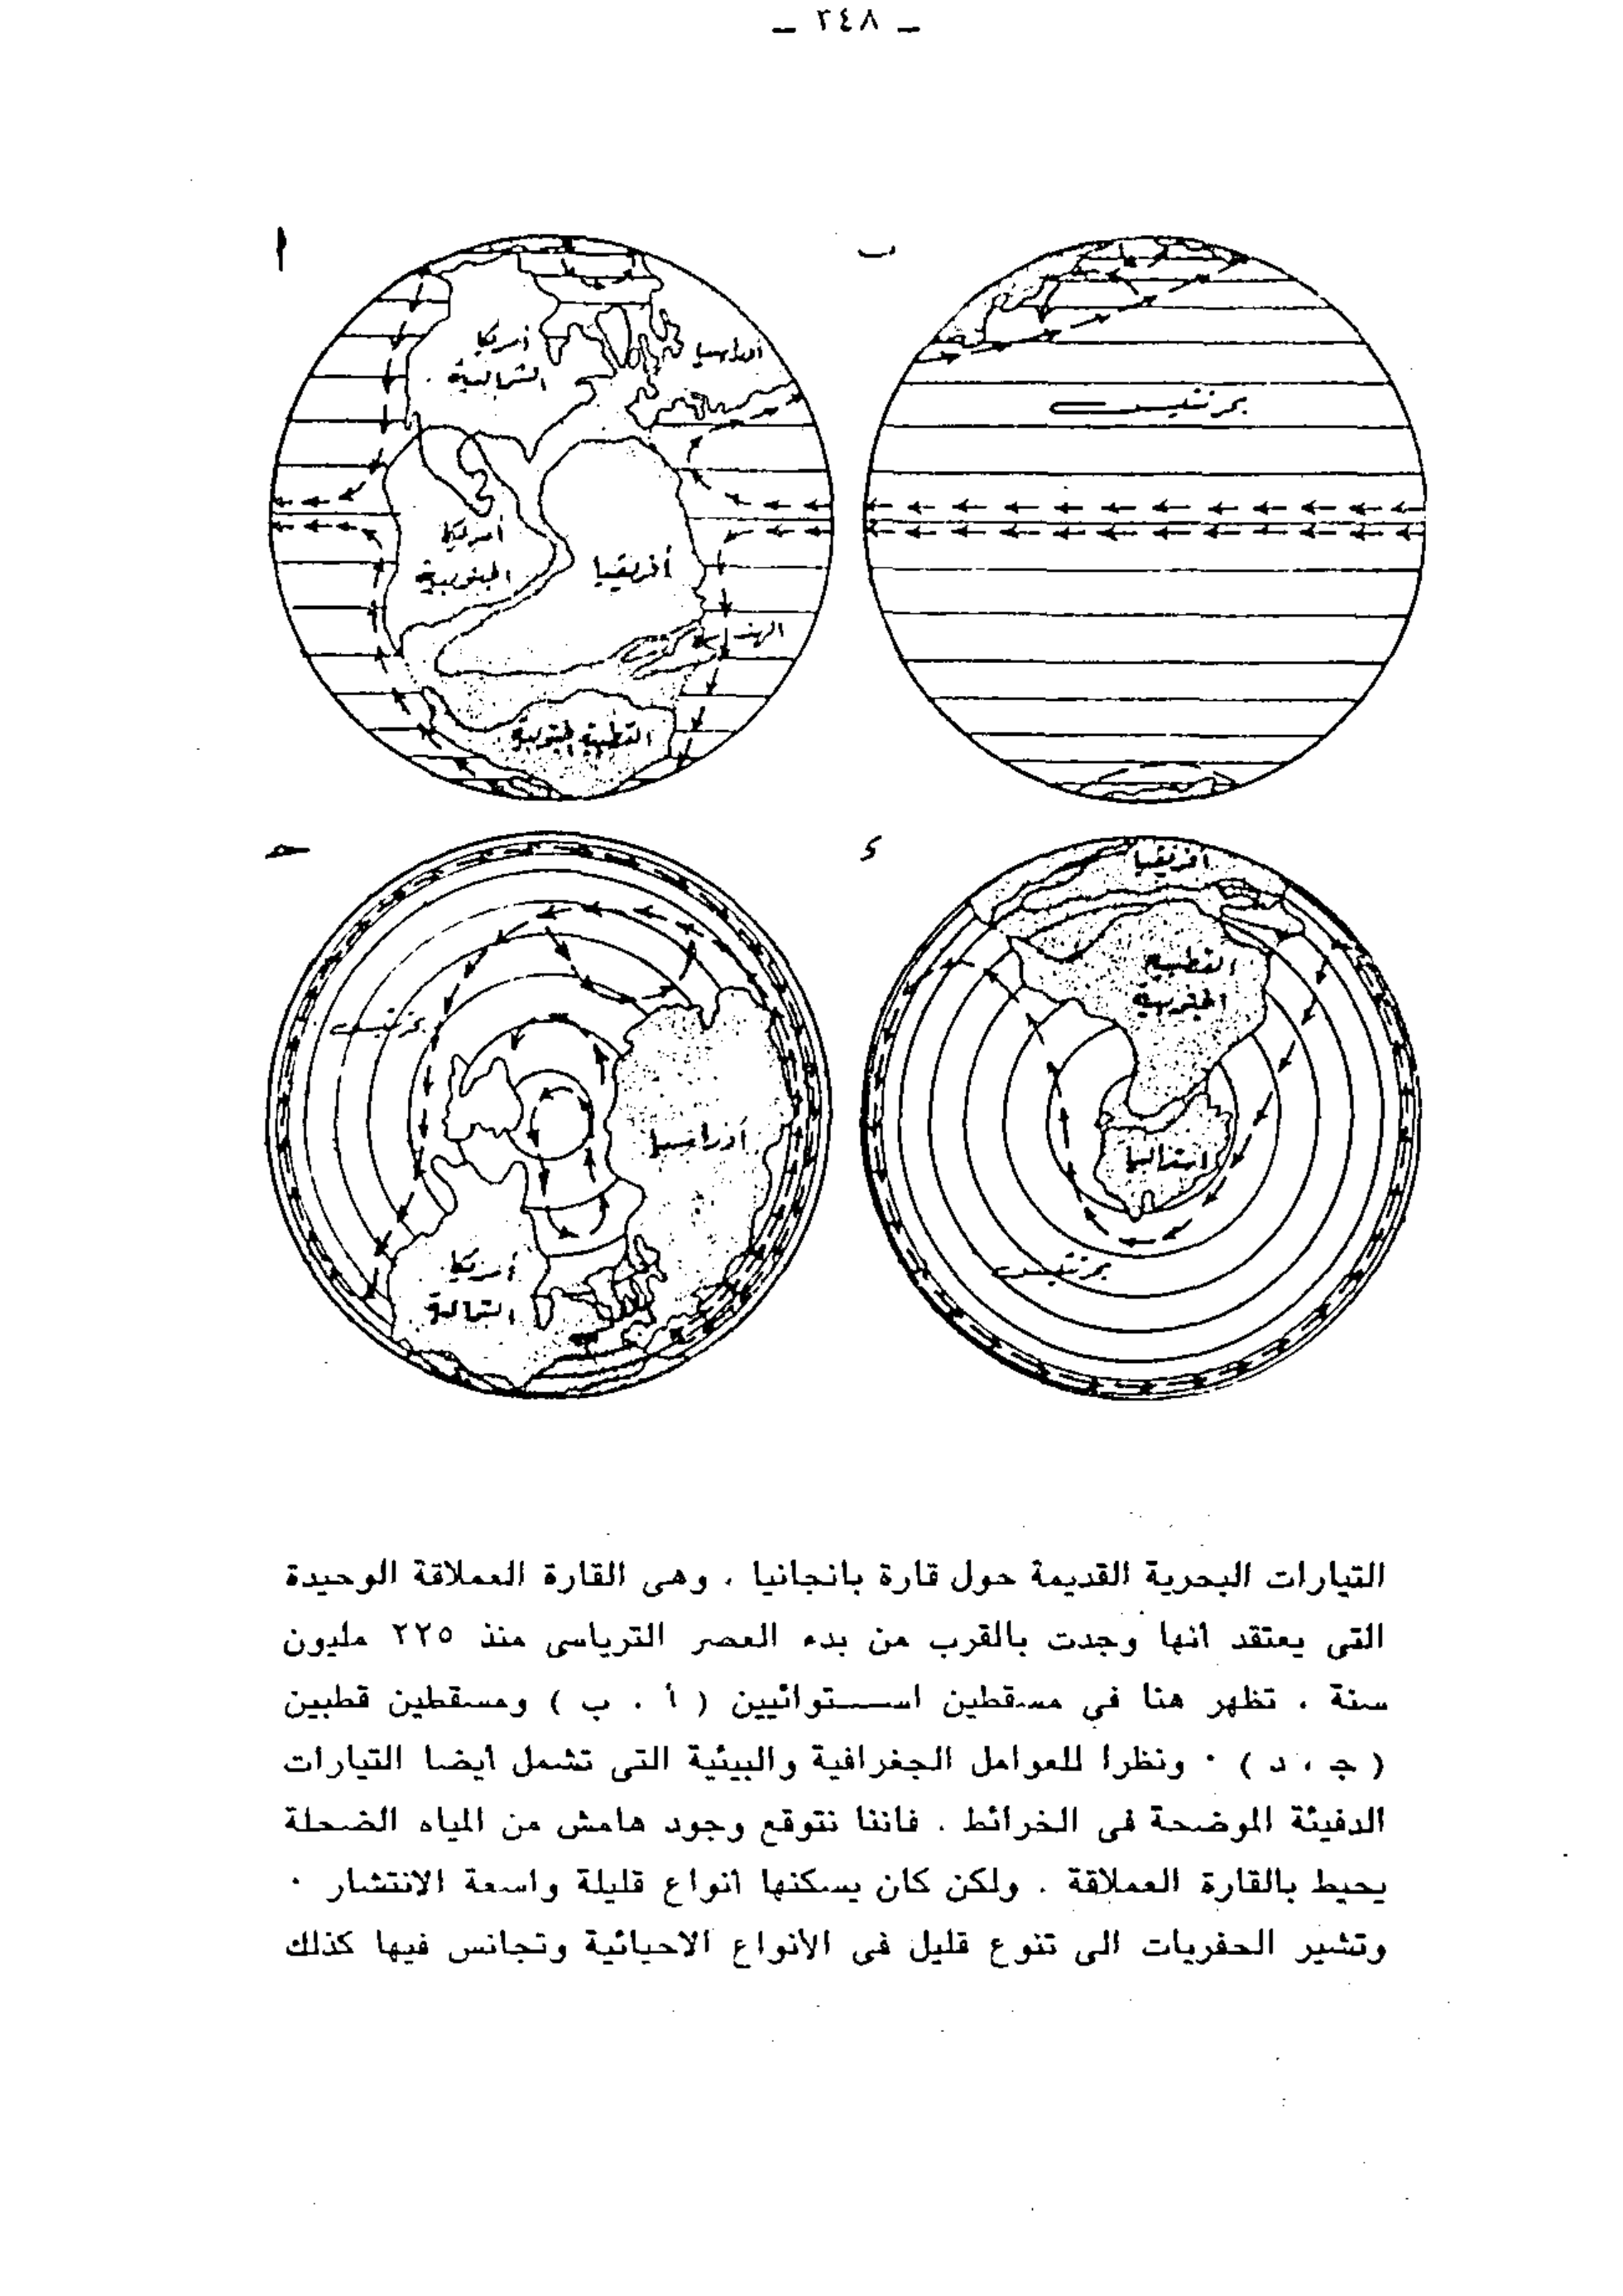 – ٢٤٨ –
أ
ب
أمريكا
الشمالية
أوراسيا
بحر تثيس
أمريكا
الجنوبية
أفريقيا
الهند
القطبية الجنوبية
ج
د
أفريقيا
القطبية
الجنوبية
بحر تثيس
أوراسيا
استراليا
أمريكا
الشمالية
بحر تثيس
التيارات البحرية القديمة حول قارة بانجانيا ، وهى القارة العملاقة الوحيدة
التى يعتقد انها وجدت بالقرب من بدء العصر الترياسى منذ ٢٢٥ مليون
سنة ، تظهر هنا في مسقطين استوائيين ( أ ، ب ) ومسقطين قطبين
( ج ، د ) ٠ ونظرا للعوامل الجغرافية والبيئية التى تشمل أيضا التيارات
الدفيئة الموضحة فى الخرائط ، فاننا نتوقع وجود هامش من المياه الضحلة
يحيط بالقارة العملاقة ، ولكن كان يسكنها أنواع قليلة واسعة الانتشار ٠
وتشير الحفريات الى تنوع قليل فى الأنواع الاحيائية وتجانس فيها كذلك